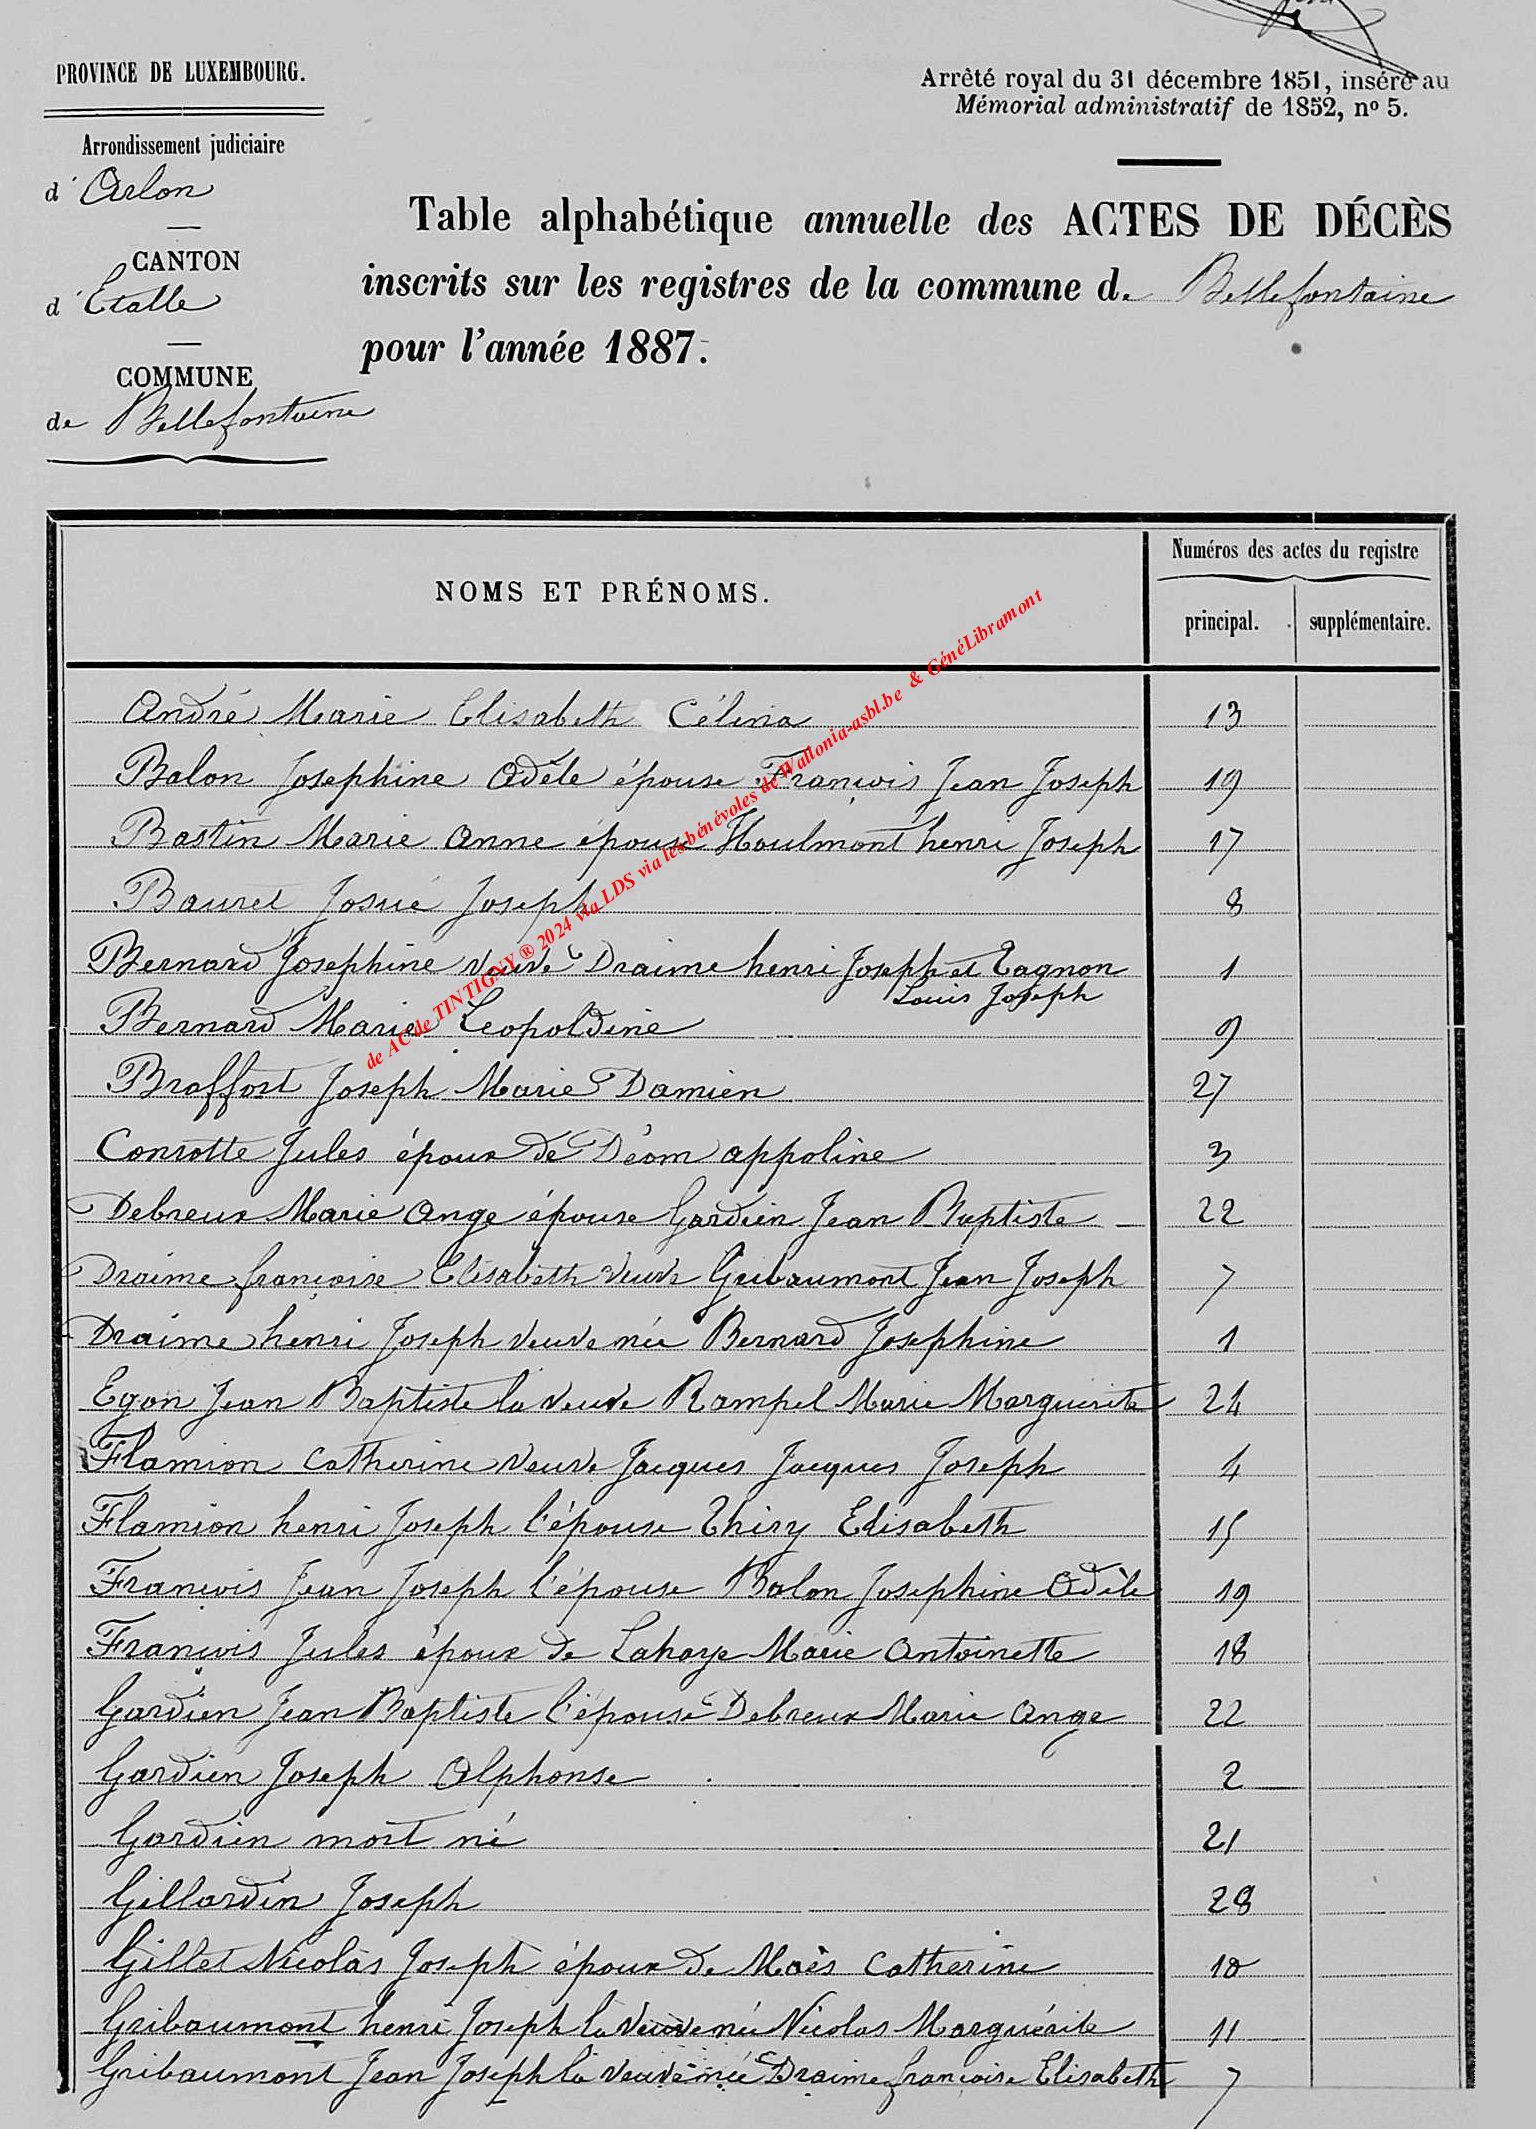 PROVINCE DE LUXEMBOURG.
Arrondissement judiciaire
d'Arlon
CANTON
d'Etalle
COMMUNE
de Bellefontaine
Arrêté royal du 31 décembre 1851, inséré au
Mémorial administratif de 1852, nº 5.
Table alphabétique annuelle des ACTES DE DÉCÈS
inscrits sur les registres de la commune de Bellefontaine
pour l'année 1887.
NOMS ET PRÉNOMS.
Numéros des actes du registre
principal. supplémentaire.
de AC de TINTIGNY ® 2024 via LDS via les bénévoles de Wallonia-asbl.be & GénéLibramont
André Marie Elisabeth Célina 13
Balon Josephine Adèle épouse François Jean Joseph 19
Bastin Marie Anne épouse Houlmont henri Joseph 17
Bauret Josué Joseph 8
Bernard Josephine veuve Draime henri Joseph et Tagnon 1
Louis Joseph
Bernard Marie Leopoldine 9
Braffort Joseph Marie Damien 27
Consotte Jules époux de Déom appoline 3
Debreux Marie Ange épouse Gardien Jean Baptiste 22
Draime françoise Elisabeth veuve Gribaumont Jean Joseph 7
Draime henri Joseph veuve née Bernard Josephine 1
Egon Jean Baptiste la veuve Rampel Marie Marguerite 24
Flamion Catherine veuve Jacques Jacques Joseph 4
Flamion henri Joseph l'épouse Thiry Elisabeth 15
François Jean Joseph l'épouse Balon Josephine Adèle 19
François Jules époux de Lahaye Marie Antoinette 18
Gardien Jean Baptiste l'épouse Debreux Marie Ange 22
Gardien Joseph Alphonse 2
Gardien mort né 21
Gillardin Joseph 28
Gillet Nicolas Joseph époux de Maès Catherine 10
Gribaumont henri Joseph la veuve née Nicolas Marguérite 11
Gribaumont Jean Joseph la veuve née Draime françoise Elisabeth 7